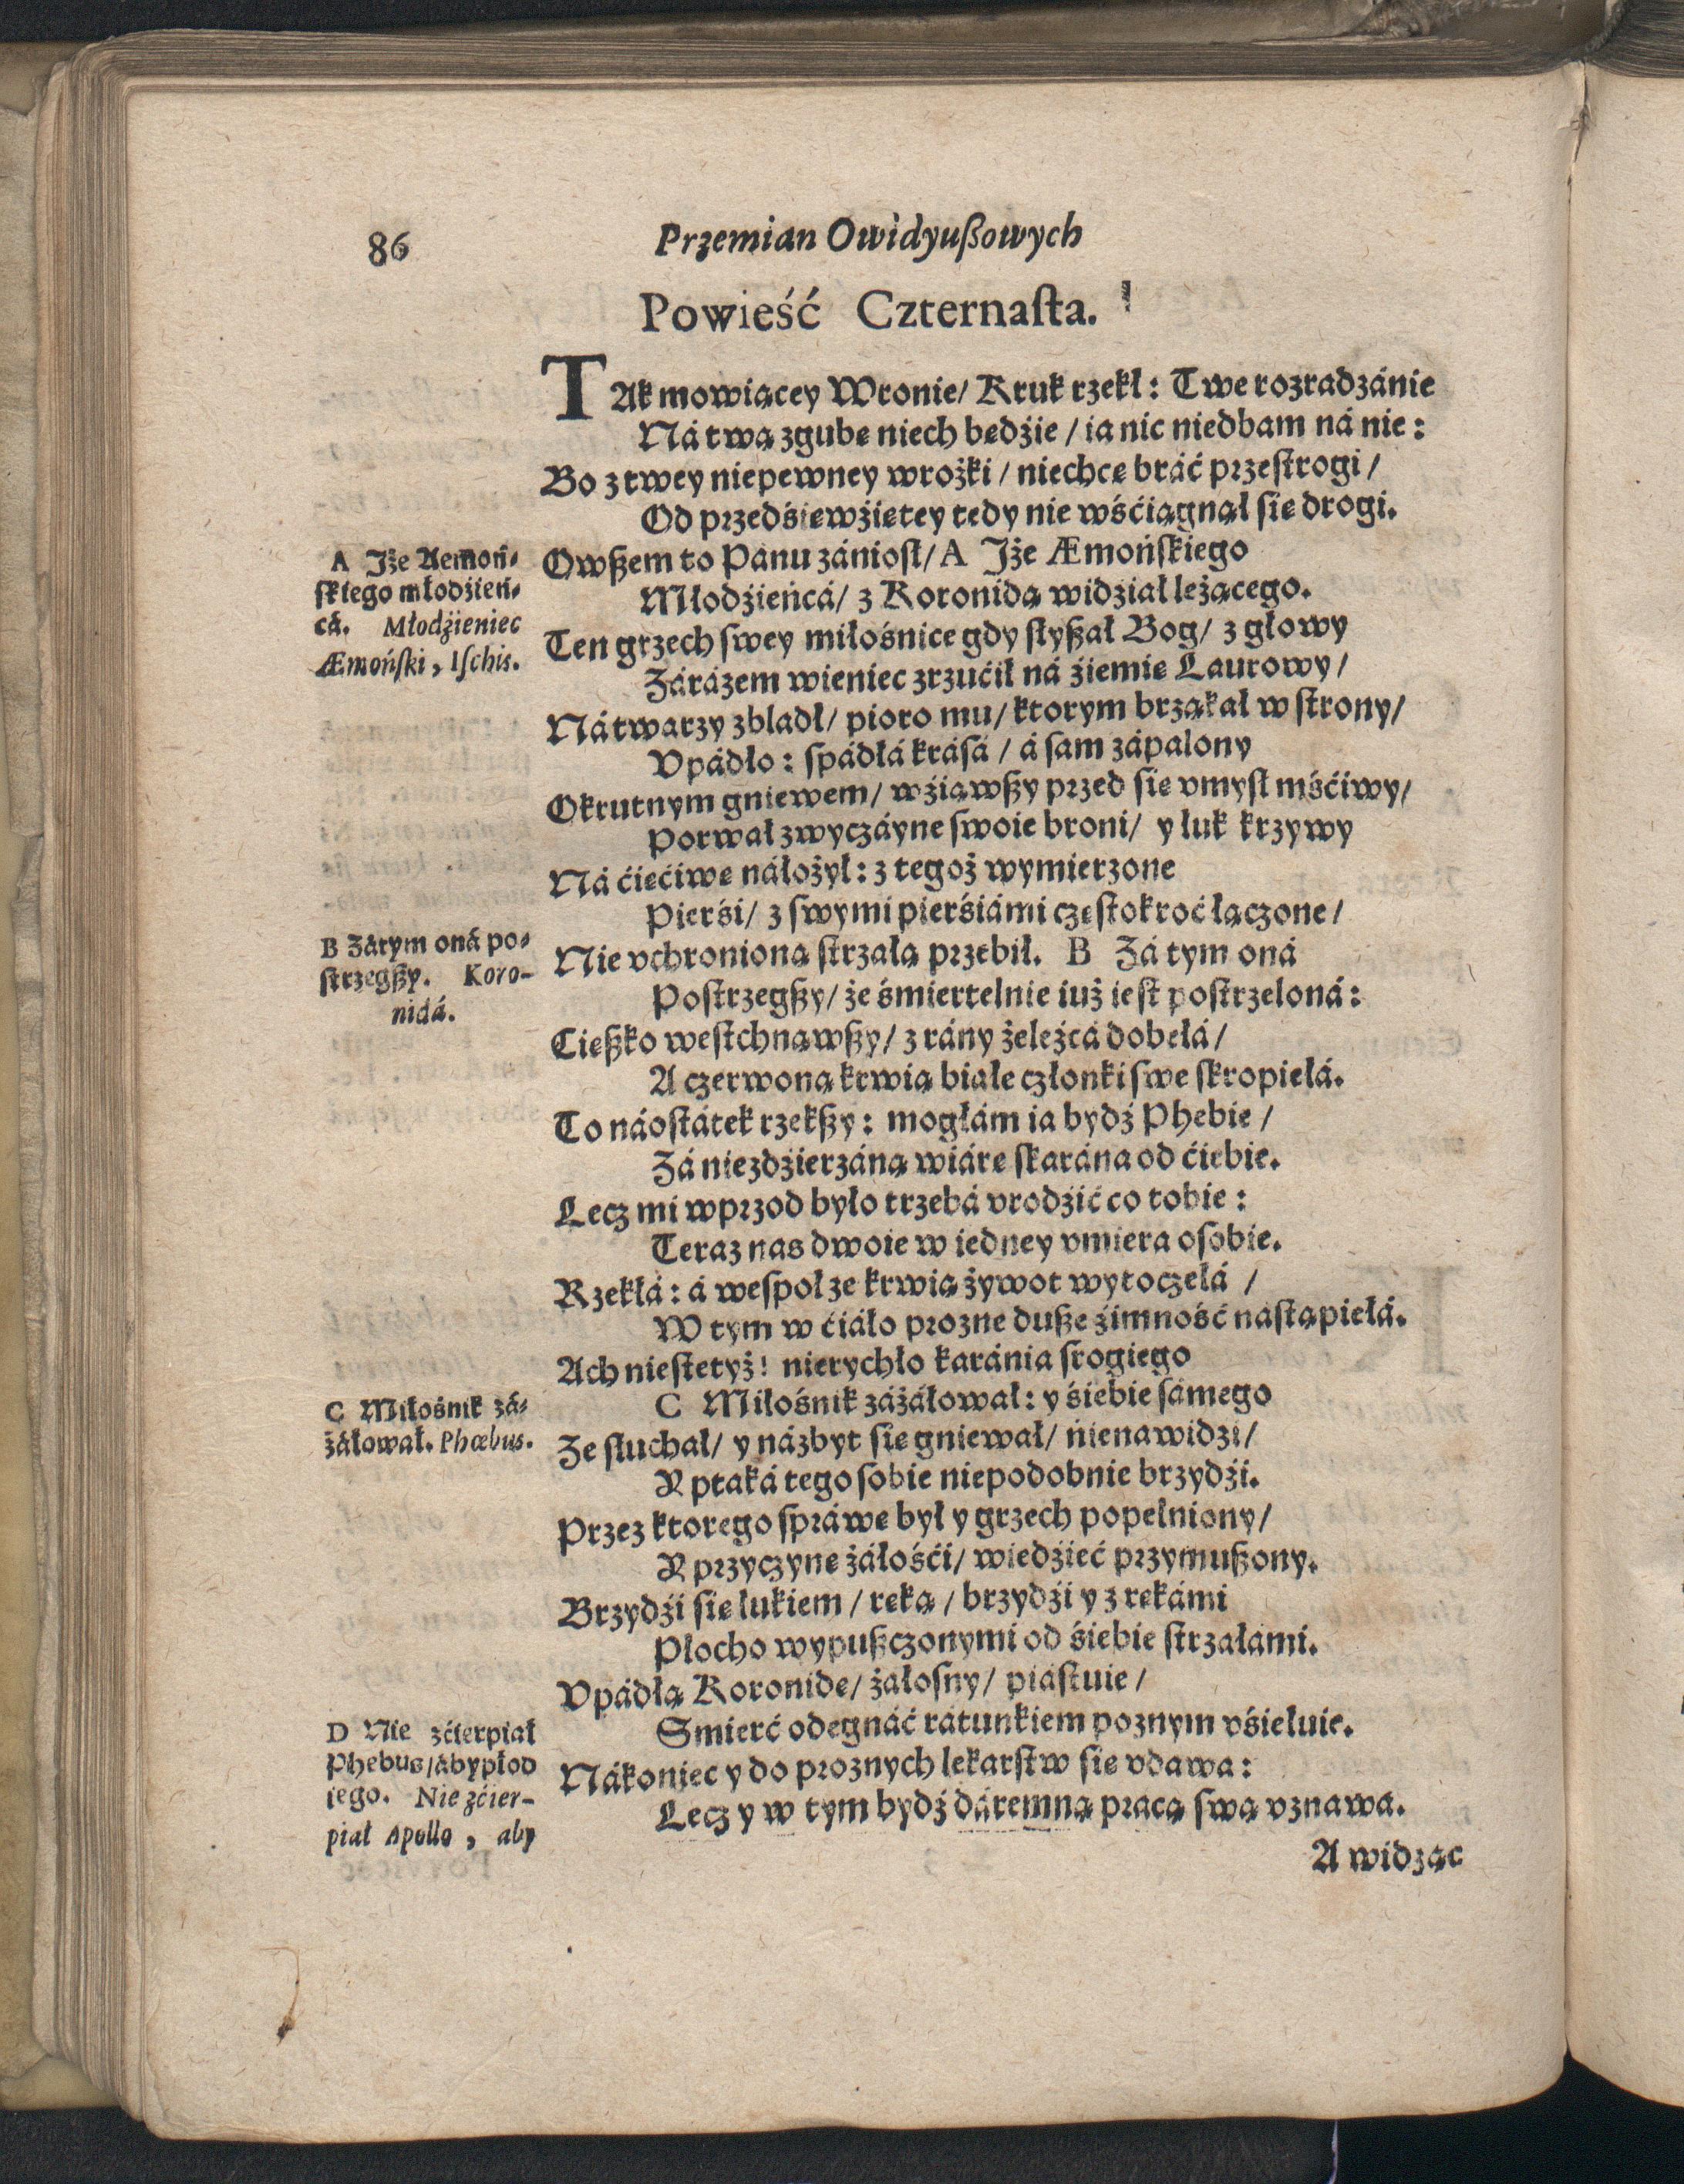 86
Przemian Owidyußowych
Powieść Czternaſta.
TAk mowiącey Wronie/ Kruk rzekł: Twe rozradzánie
Ná twą zgubę niech będźie / ia nic niedbam ná nie:
Bo z twey niepewney wrożki / niechcę bráć przeſtrogi /
Od przedśięwźiętey tedy nie wśćiągnął ſię drogi.
A Jże Aemoń⸗
ſkiego młodźień⸗
cá. Młodźieniec
Æmońſki, Iſchis.
Owßem to Pánu zánioſł/ A Jże Æmońſkiego
Młodźieńcá/ z Koronidą widział leżącego.
Ten grzech ſwey miłośnice gdy ſłyßał Bog/ z głowy
Zárázem wieniec zrzućił ná źiemię Laurowy /
Ná twarzy zbladł/ pioro mu/ ktorym brząkał w ſtrony/
Vpádło: ſpádłá kráſá / á ſam zápalony
Okrutnym gniewem/ wźiąwßy przed ſię vmyſł mśćiwy/
Porwał zwyczáyne ſwoie broni/ y łuk krzywy
Ná ćięćiwę náłożył: z tegoż wymierzone
Pierśi/ z ſwymi pierśiámi częſtokroć łączone/
B Zátym oná po⸗
ſtrzegßy. Koro-
nidá.
Nie vchronioną ſtrzałą przebił. B Zá tym oná
Poſtrzegßy/ że śmiertelnie iuż ieſt poſtrzeloná:
Cießko weſtchnąwßy/ z rány żeleźcá dobełá/
A czerwoną krwią białe członki ſwe ſkropiełá.
To náoſtátek rzekßy: mogłám ia bydź Phebie /
Zá niezdźierzáną wiárę ſkarána od ćiebie.
Lecz mi wprzod było trzebá vrodźić co tobie:
Teraz nas dwoie w iedney vmiera oſobie.
Rzekłá: á weſpoł ze krwią żywot wytoczełá /
W tym w ćiáło prozne duße źimność náſtąpiełá.
Ach nieſtetyż! nierychło karánia ſrogiego
C Miłośnik zá⸗
żáłował. Phœbus.
C Miłośnik záżáłował: y śiebie ſámego
Ze słuchał/ y názbyt ſię gniewał/ nienawidzi/
Y ptaká tego ſobie niepodobnie brzydźi.
Przez ktorego ſpráwę był y grzech popełniony/
Y przyczynę żáłośći/ wiedźieć przymußony.
Brzydźi ſię łukiem / ręką / brzydźi y z rękámi
Płocho wypußczonymi od śiebie ſtrzałámi.
Vpádłą Koronidę/ żałoſny/ piáſtuie /
D Nie zćierpiał
Phebus/ áby płod
iego. Nie zćier-
piał Apollo, aby
Smierć odegnáć rátunkiem poznym vśiełuie.
Nákoniec y do proznych lekarſtw ſię vdawa:
Lecz y w tym bydź dáremną pracą ſwą vznawa.
A widząc